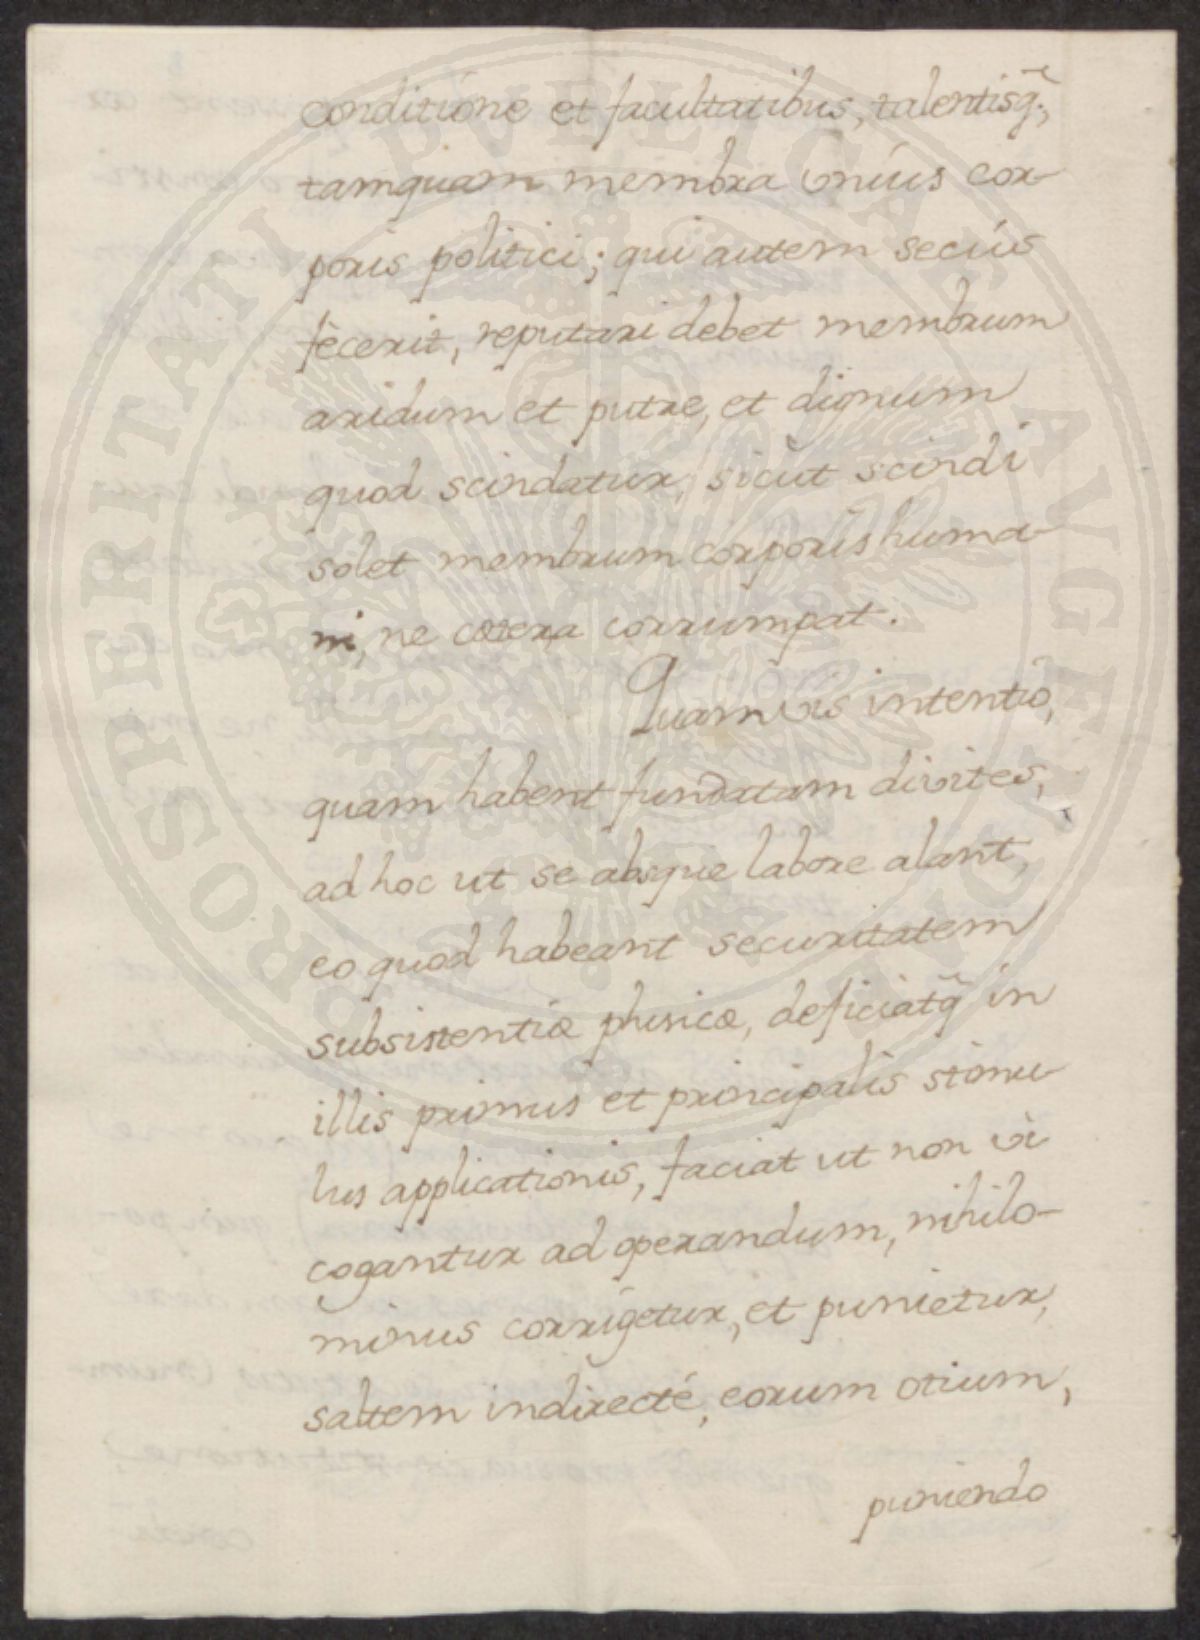 conditióne et facultatibus, talentisq̃;,
tamquam membra uniús cor-
poris politici; qui autem seciús
fècerit, reputari debet membrum
aridum et putre, et dignum
quod scindatur, sicùt scindi
solet membrum corporis huma-
ni, ne cætera corrumpat.
Quamvis intentio,
quam habent fundatam divites,
ad hoc ut se absque labore alant,
eo quod habeant securitatem
subsistentiæ phisicæ, deficiatq̃ in
illis primus et principalis stimu-
lus applicationis, faciat ut non vi
cogantur ad operandum, nihilo-
minus corrigetur, et punietur,
saltem indirecté, eorum otium,
puniendo
PROSPERITATI PVBLICAE AVGENDAE